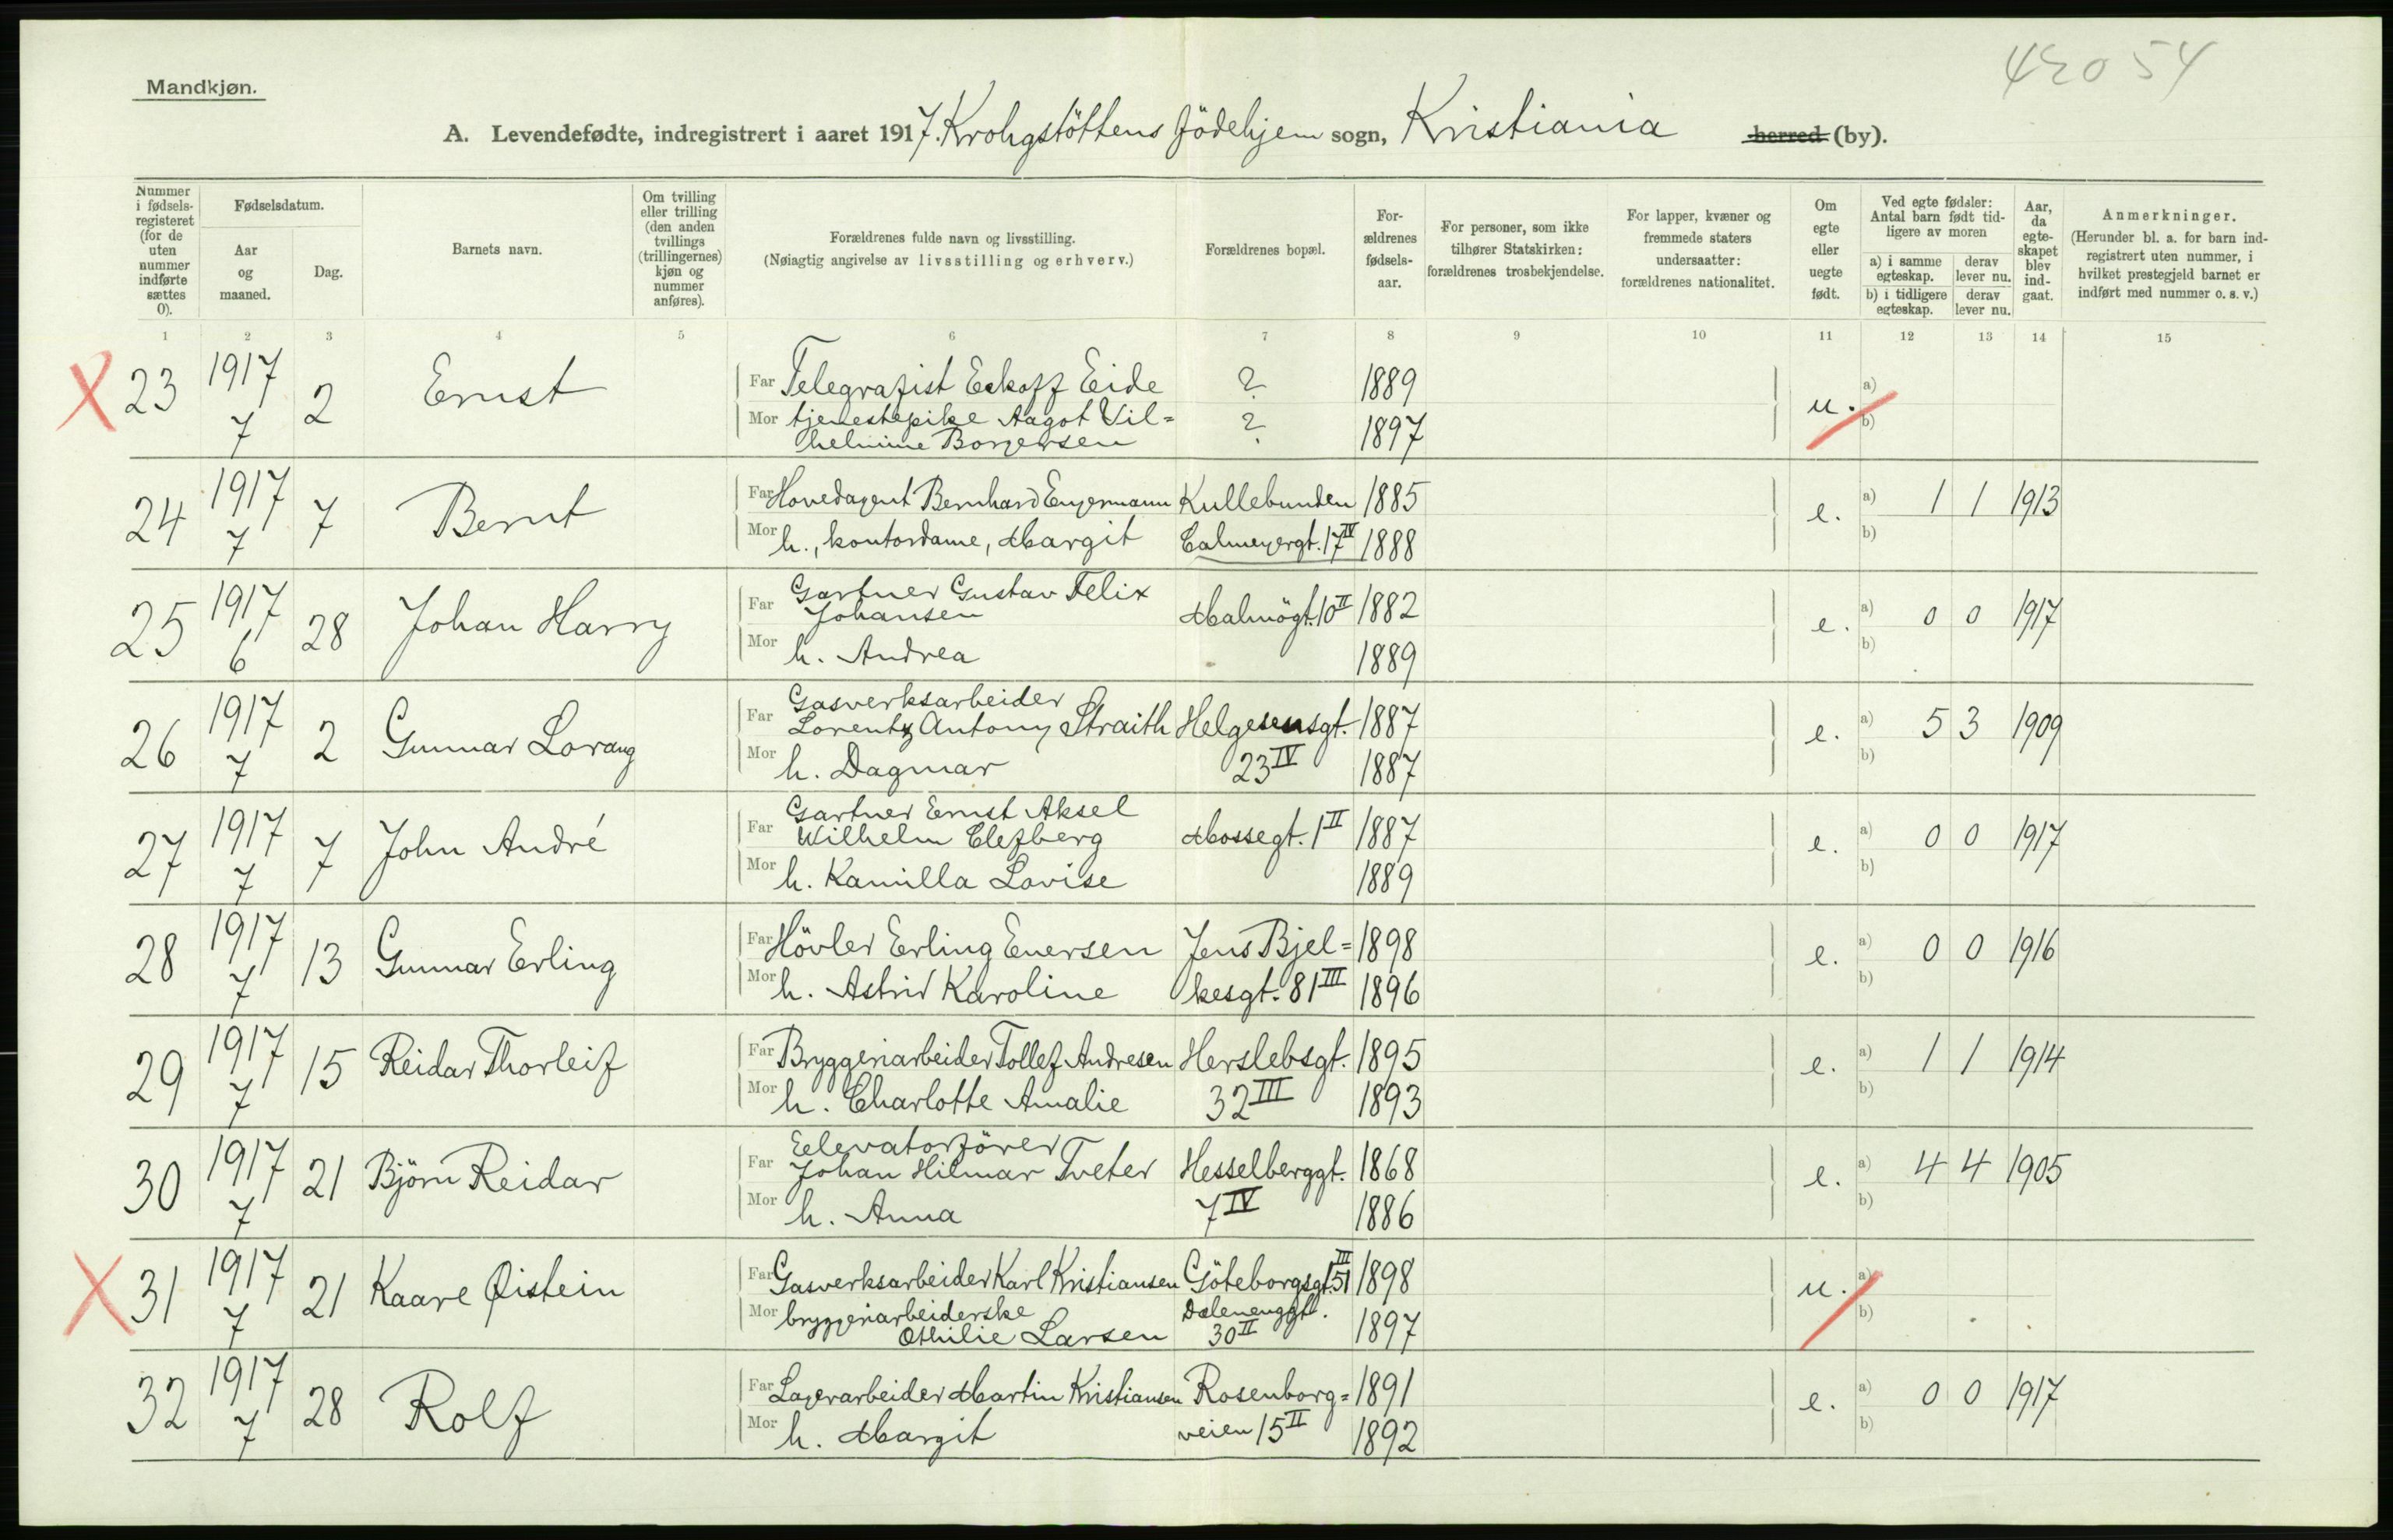 42054
Mandkjøn.
A. Levendefødte, indregistrert i aaret 1917. Krohgstöttens födehjem sogn, Kristiania herred (by).
Nummer i fødselsregisteret (for de uten nummer indførte sættes 0).
Fødselsdatum.
Aar og maaned.
Dag.
Barnets navn.
Om tvilling eller trilling (den anden tvillings (trillingernes) kjøn og nummer anføres).
Forældrenes fulde navn og livsstilling.
(Nøiagtig angivelse av livsstilling og erhverv.)
Forældrenes bopæl.
Forældrenes fødselsaar.
For personer, som ikke tilhører Statskirken: forældrenes trosbekjendelse.
For lapper, kvæner og fremmede staters undersaatter: forældrenes nationalitet.
Om egte eller uegte født.
Ved egte fødsler: Antal barn født tidligere av moren
a) i samme egteskap. derav lever nu.
b) i tidligere egteskap. derav lever nu.
Aar, da egteskapet blev indgaat.
Anmerkninger.
(Herunder bl. a. for barn indregistrert uten nummer, i hvilket prestegjeld barnet er indført med nummer o. s. v.)
1 2 3 4 5 6 7 8 9 10 11 12 13 14 15
X 23 1917 7 2 Ernst Far Telegrafist Eckoff Eide ? 1889 u. a)
Mor tjenestepike Aagot Vil=
helmine Borgersen ? 1897 b)
24 1917 7 7 Bernt Far Hovedagent Bernhard Engermann Kullebunden 1885 e. a) 1 1 1913
Mor h., kontordame, Margit Calmeyergt. 17 IV 1888 b)
25 1917 6 28 Johan Harry Far Gartner Gustav Felix
Johansen Malmögt. 10 II 1882 e. a) 0 0 1917
Mor h. Andrea 1889 b)
26 1917 7 2 Gunnar Lorang Far Gasverksarbeider
Lorentz Antony Straith Helgesensgt. 1887 e. a) 5 3 1909
Mor h. Dagmar 23 IV 1887 b)
27 1917 7 7 John André Far Gartner Ernst Aksel
Wilhelm Clefberg Mossegt. 1 II 1887 e. a) 0 0 1917
Mor h. Kamilla Lovise 1889 b)
28 1917 7 13 Gunnar Erling Far Hövler Erling Enersen Jens Bjel= 1898 e. a) 0 0 1916
Mor h. Astrid Karoline kesgt. 81 III 1896 b)
29 1917 7 15 Reidar Thorleif Far Bryggeriarbeider Tollef Andresen Herslebsgt. 1895 e. a) 1 1 1914
Mor h. Charlotte Amalie 32 III 1893 b)
30 1917 7 21 Björn Reidar Far Eelevatorförer
Johan Hilmar Tveter Hesselberggt. 1868 e. a) 4 4 1905
Mor h. Anna 7 IV 1886 b)
X 31 1917 7 21 Kaare Øistein Far Gasverksarbeider Karl Kristiansen Göteborgsgt. 51 III 1898 u. a)
Mor bryggeriarbeiderske Dælenenggt.
Othilie Larsen 30 II 1897 b)
32 1917 7 28 Rolf Far Lagerarbeider Martin Kristiansen Rosenborg= 1891 e. a) 0 0 1917
Mor h. Margit veien 15 II 1892 b)